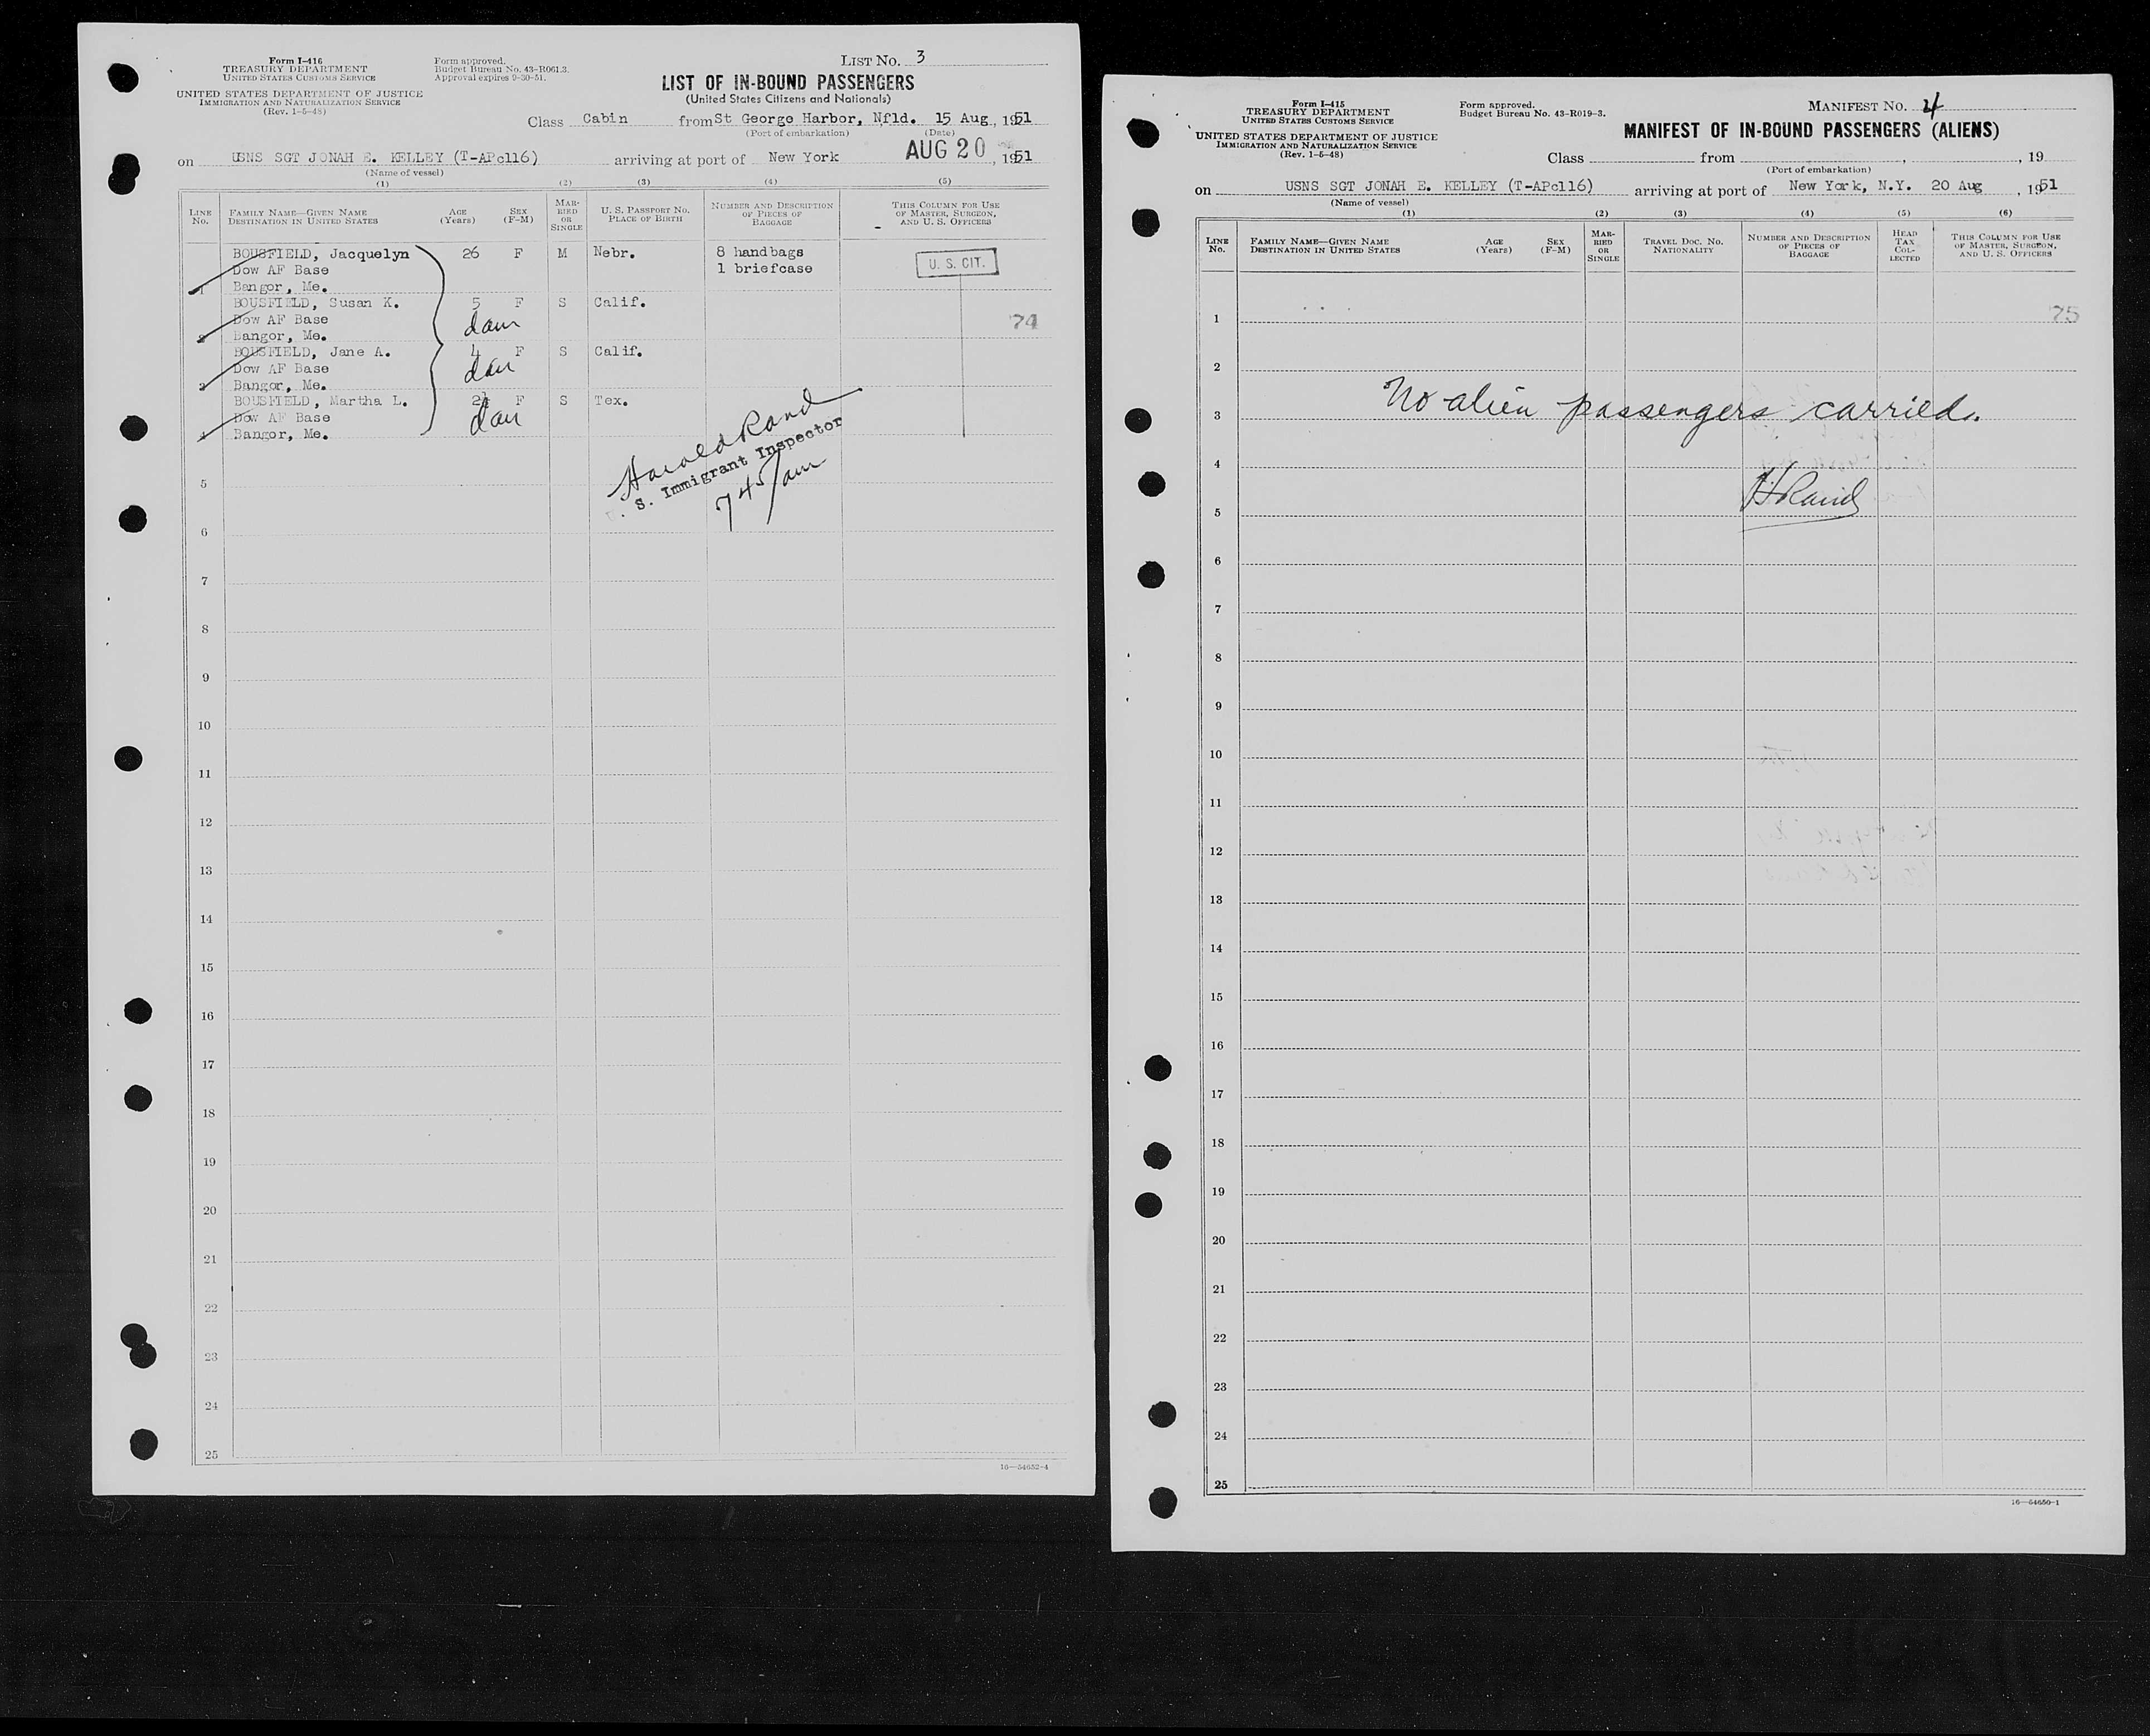 Form I-416
TREASURY DEPARTMENT
UNITED STATES CUSTOMS SERVICE
UNITED STATES DEPARTMENT OF JUSTICE
IMMIGRATION AND NATURALIZATION SERVICE
(Rev. 1-5-48)
Form approved.
Budget Bureau No. 43-R061.3.
Approval expires 9-30-51.
LIST NO. 3
LIST OF IN-BOUND PASSENGERS
(United States Citizens and Nationals)
Class Cabin from St George Harbor, Nfld. 15 Aug, 1951
(Port of embarkation) (Date)
on USNS SGT JONAH E. KELLEY (T-APc116) arriving at port of New York AUG 20, 1951
(Name of vessel)
(1) (2) (3) (4) (5)
LINE NO.
FAMILY NAME—GIVEN NAME
DESTINATION IN UNITED STATES
AGE (Years)
SEX (F-M)
MARRIED OR SINGLE
U. S. PASSPORT NO.
PLACE OF BIRTH
NUMBER AND DESCRIPTION OF PIECES OF BAGGAGE
THIS COLUMN FOR USE OF MASTER, SURGEON, AND U. S. OFFICERS
BOUSFIELD, Jacquelyn 26 F M Nebr. 8 handbags
Dow AF Base 1 briefcase U. S. CIT.
1 Bangor, Me.
BOUSFIELD, Susan K. 5 F S Calif.
Dow AF Base dau 74
2 Bangor, Me.
BOUSFIELD, Jane A. 4 F S Calif.
Dow AF Base dau
3 Bangor, Me.
BOUSFIELD, Martha L. F S Tex.
Dow AF Base dau
4 Bangor, Me.
Harold Rand
S. Immigrant Inspector
745 am
5
6
7
8
9
10
11
12
13
14
15
16
17
18
19
20
21
22
23
24
25
16—54652-4
Form I-415
TREASURY DEPARTMENT
UNITED STATES CUSTOMS SERVICE
UNITED STATES DEPARTMENT OF JUSTICE
IMMIGRATION AND NATURALIZATION SERVICE
(Rev. 1-5-48)
Form approved.
Budget Bureau No. 43-R019-3.
MANIFEST NO. 4
MANIFEST OF IN-BOUND PASSENGERS (ALIENS)
Class from , , 19
(Port of embarkation)
on USNS SGT JONAH E. KELLEY (T-APc116) arriving at port of New York, N.Y. 20 Aug, 1951
(Name of vessel)
(1) (2) (3) (4) (5) (6)
LINE NO.
FAMILY NAME—GIVEN NAME
DESTINATION IN UNITED STATES
AGE (Years)
SEX (F-M)
MARRIED OR SINGLE
TRAVEL DOC. NO.
NATIONALITY
NUMBER AND DESCRIPTION OF PIECES OF BAGGAGE
HEAD TAX COLLECTED
THIS COLUMN FOR USE OF MASTER, SURGEON, AND U. S. OFFICERS
1 75
2
3 No alien passengers carried.
4
5 H Rand
6
7
8
9
10
11
12
13
14
15
16
17
18
19
20
21
22
23
24
25
16—54650-1